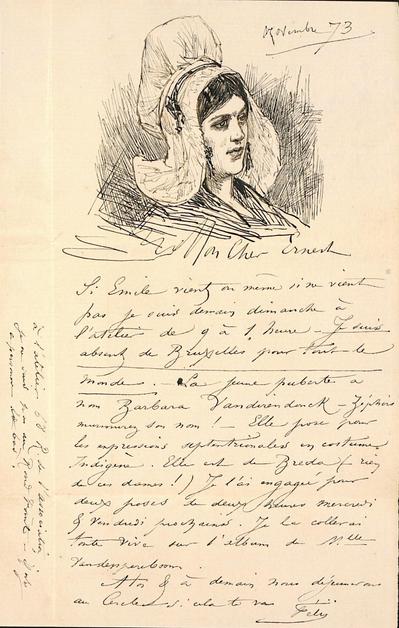 Novembre 73
Mon Cher Ernest
Si Emile vient ou même si ne vient
pas je suis demain dimanche à
l'atelier de 9 à 1 heure – Je suis
absent de Bruxelles pour tout le
monde. – La jeune puberte a
nom Barbara Vanderendonck – Zéphirs
murmurez son nom ! – Elle pose pour
les impressions septentrionales en costume
Indigène. Elle est de Breda (– rien
de ces dames !) Je l'ai engagée pour
deux poses de deux heures mercredi
& Vendredi prochains. Je la collerai
toute vive sur l'album de Mlle
Vandenpeereboom.
à demain nous déjeunerons
au Cercle si cela te va
Fély
à l'atelier 68 R. de l'association
Je ne suis pas au Rond Point –